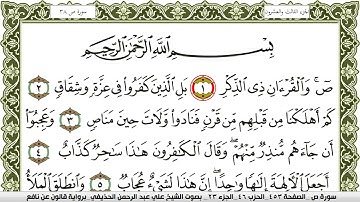 الجزء الثالث والعشرون
سورة ص ٣٨
بِسْمِ اللَّهِ الرَّحْمَٰنِ الرَّحِيمِ
صٓ ۚ وَالْقُرْءَانِ ذِى الذِّكْرِ ١ بَلِ الَّذِينَ كَفَرُوا۟ فِى عِزَّةٍ وَشِقَاقٍ ٢
كَمْ أَهْلَكْنَا مِن قَبْلِهِم مِّن قَرْنٍ فَنَادَوا۟ وَّلَاتَ حِينَ مَنَاصٍ ٣ وَعَجِبُوٓا۟
أَن جَآءَهُم مُّنذِرٌ مِّنْهُمْ ۖ وَقَالَ الْكَٰفِرُونَ هَٰذَا سَٰحِرٌ كَذَّابٌ ٤
أَجَعَلَ الْءَالِهَةَ إِلَٰهًا وَٰحِدًا ۖ إِنَّ هَٰذَا لَشَىْءٌ عُجَابٌ ٥ وَانطَلَقَ الْمَلَأُ
سورة ص - الصفحة ٤٥٣ - الحزب ٤٦ - الجزء ٢٣ - بصوت الشيخ علي عبد الرحمن الحذيفي - برواية قالون عن نافع